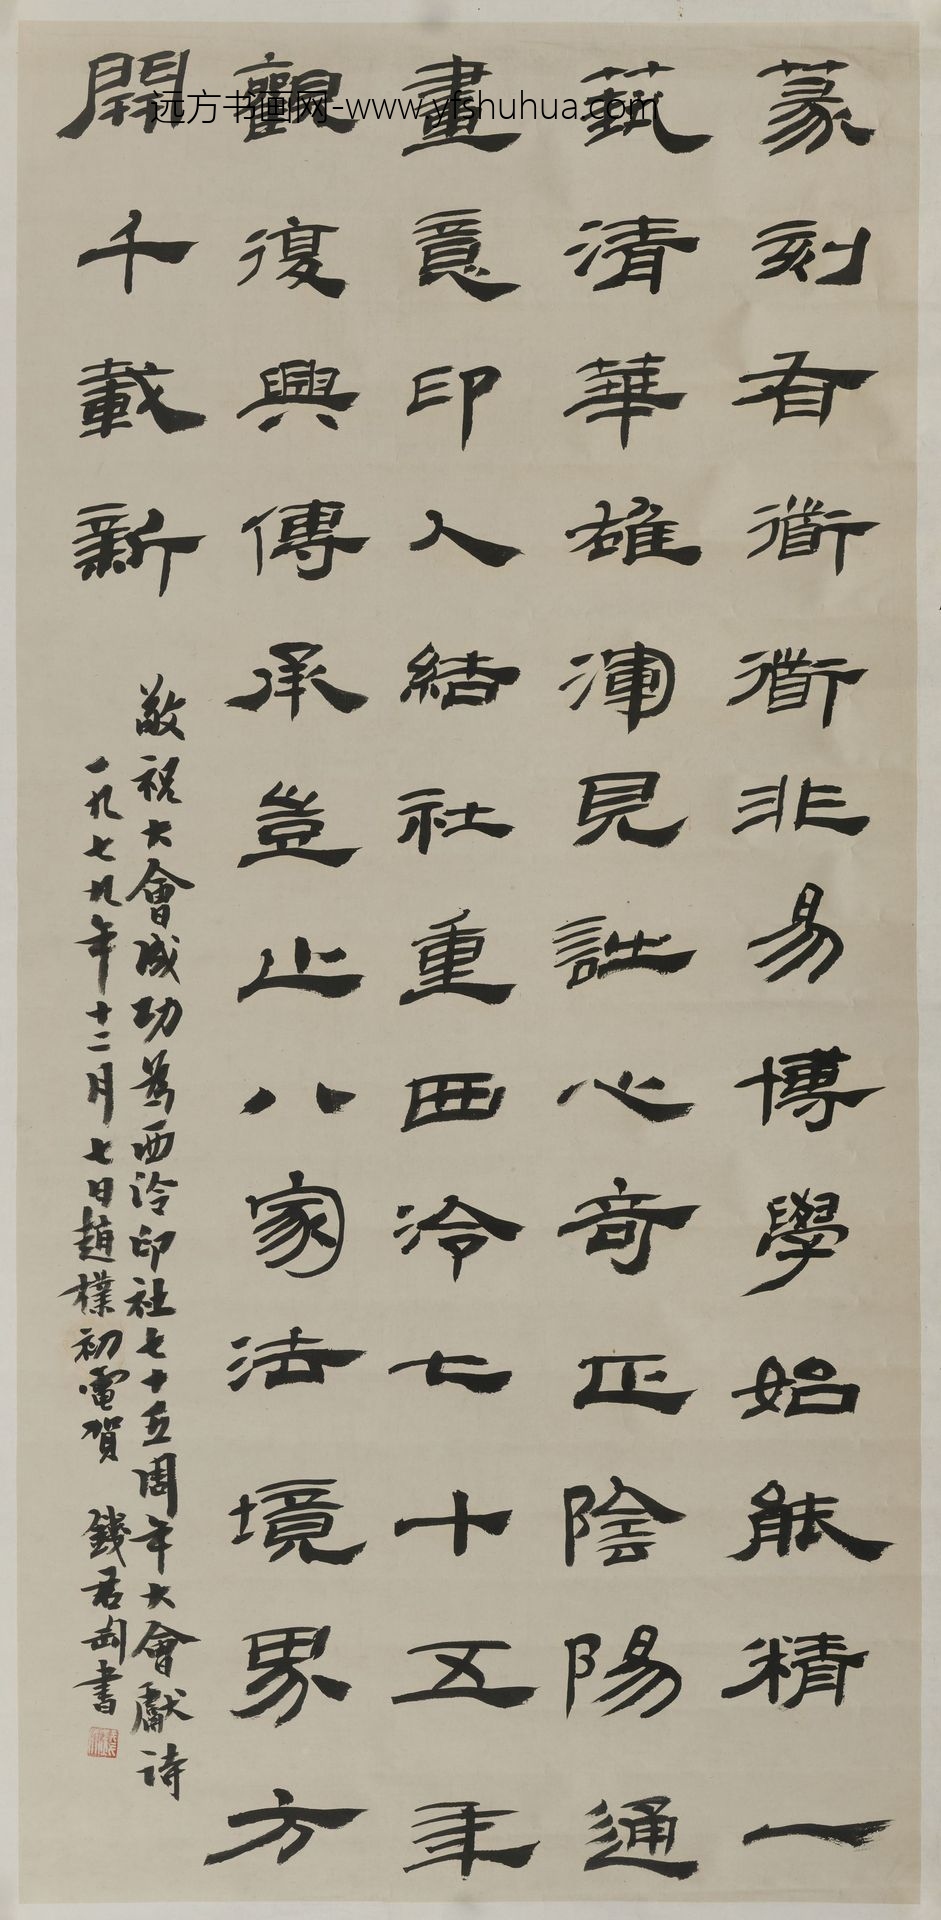 篆刻有衜衜非易博學始能精一
藝清華雄渾見訨心奇正陰陽通
畫意印人結社重西泠七十五年
觀復興傳承豈止八家法境界方
開千載新
敬祝大會成功為西泠印社七十五周年大會獻詩
一九七九年十二月七日趙樸初電賀 錢君匋書
远方书画网-www.yfshuhua.com